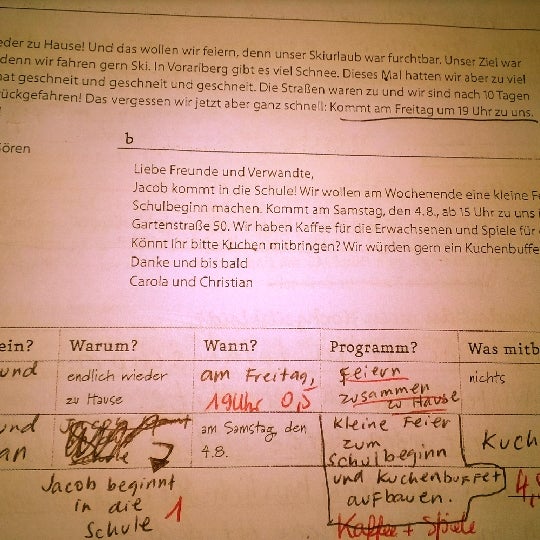 eder zu Hause! Und das wollen wir feiern, denn unser Skiurlaub war furchtbar. Unser Ziel war
denn wir fahren gern Ski. In Vorarlberg gibt es viel Schnee. Dieses Mal hatten wir aber zu viel
hat geschneit und geschneit und geschneit. Die Straßen waren zu und wir sind nach 10 Tagen
rückgefahren! Das vergessen wir jetzt aber ganz schnell: Kommt am Freitag um 19 Uhr zu uns.
Sören
b
Liebe Freunde und Verwandte,
Jacob kommt in die Schule! Wir wollen am Wochenende eine kleine Fe
Schulbeginn machen. Kommt am Samstag, den 4.8., ab 15 Uhr zu uns i
Gartenstraße 50. Wir haben Kaffee für die Erwachsenen und Spiele für
Könnt Ihr bitte Kuchen mitbringen? Wir würden gern ein Kuchenbuffe
Danke und bis bald
Carola und Christian
ein? Warum? Wann? Programm? Was mitb
und endlich wieder am Freitag, Feiern nichts
zu Hause 19 Uhr 0,5 zusammen
zu Hause
und am Samstag, den kleine Feier Kuch
an 4.8. zum
Schulbeginn
Jacob beginnt und Kuchenbuffet 4,
in die 1 aufbauen.
Schule Kaffee + Spiele